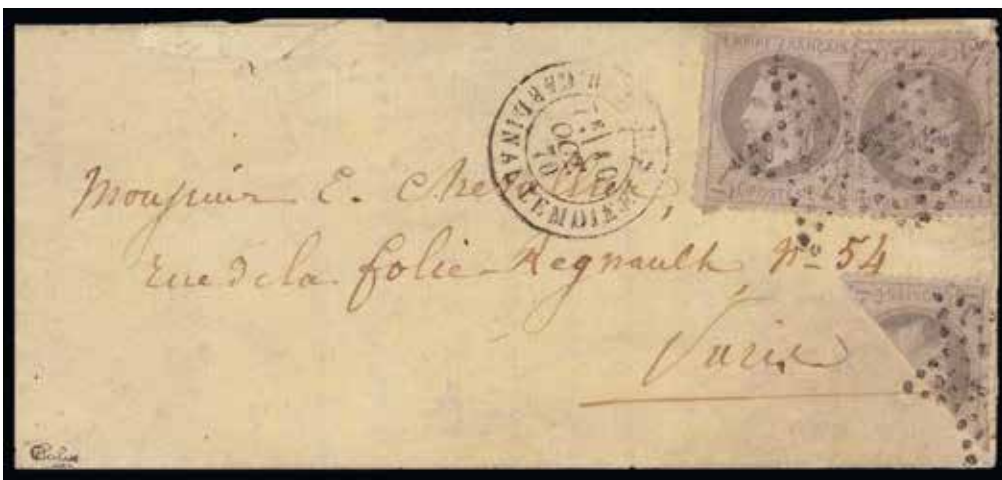 EMPIRE FRANÇAIS
R. CARDINAL LEMOINE
OCT
70
Monsieur E. Chevallier,
rue de la folie-Regnault, No 54
Paris